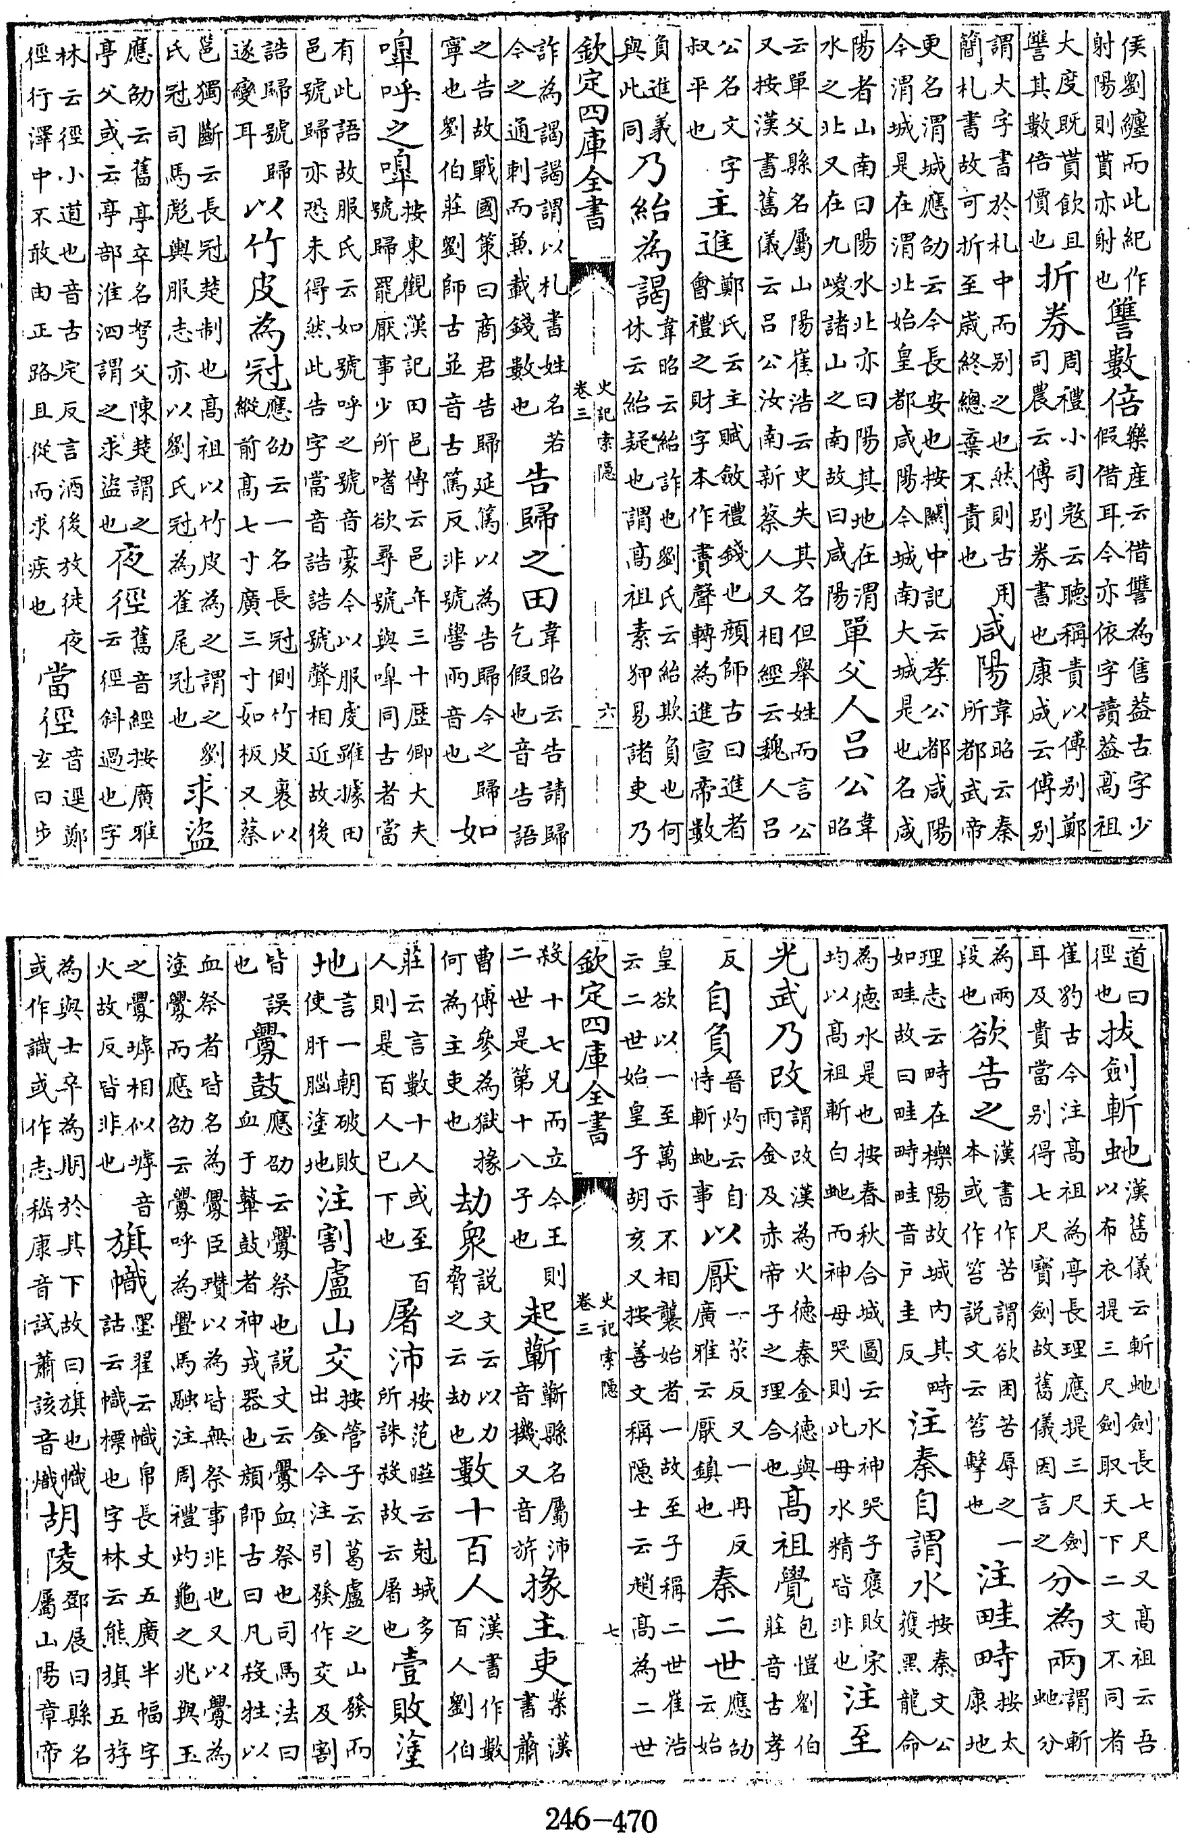 侯劉纏而此紀作射陽則貰亦射也讐數倍樂産云借讐為售蓋古字少假借耳今亦依字讀蓋高祖
大度既貰飲且讐其數倍價也折券周禮小司寇云聽稱責以傅别鄭司農云傅别券書也康成云傅别
謂大字書於札中而别之也然則古用簡札書故可折至歳終總棄不責也咸陽韋昭云秦所都武帝
更名渭城應劭云今長安也按闗中記云孝公都咸陽今渭城是在渭北始皇都咸陽今城南大城是也名咸
陽者山南曰陽水北亦曰陽其地在渭水之北又在九嵕諸山之南故曰咸陽單父人吕公韋昭
云單父縣名屬山陽崔浩云史失其名但舉姓而言公又按漢書舊儀云吕公汝南新蔡人又相經云魏人吕
公名文字叔平也主進鄭氏云主賦斂禮錢也顔師古曰進者會禮之財字本作賮聲轉為進宣帝數
負進義與此同乃紿為謁韋昭云紿詐也劉氏云紿欺負也何休云紿疑也謂高祖素狎易諸吏乃
欽定四庫全書 史記索隱 卷三 六
詐為謁謁謂以札書姓名若今之通刺而兼載錢數也告歸之田韋昭云告請歸乞假也音告語
之告故戰國策曰商君告歸延篤以為告歸今之歸寧也劉伯莊劉師古並音古篤反非號譽兩音也如
嘷呼之嘷按東觀漢記田邑傳云邑年三十歴卿大夫號歸罷厭事少所嗜欲尋號與嘷同古者當
有此語故服氏云如號呼之號音豪今以服䖍雖據田邑號歸亦恐未得然此告字當音誥誥號聲相近故後
誥歸號歸遂變耳以竹皮為冠應劭云一名長冠側竹皮裹以縱前高七寸廣三寸如板又蔡
邕獨斷云長冠楚制也髙祖以竹皮為之謂之劉氏冠司馬彪輿服志亦以劉氏冠為雀尾冠也求盜
應劭云舊亭卒名弩父陳楚謂之亭父或云亭部淮泗謂之求盜也夜徑舊音經按廣雅云徑斜過也字
林云徑小道也音古定反言酒後放徒夜徑行澤中不敢由正路且從而求疾也當徑音逕鄭玄曰步
道曰徑也拔劍斬虵漢舊儀云斬虵劍長七尺又高祖云吾以布衣提三尺劍取天下二文不同者
崔豹古今注高祖為亭長理應提三尺劍耳及貴當别得七尺寶劍故舊儀因言之分為兩謂斬虵分
為兩段也欲告之漢書作苦謂欲困苦辱之一本或作笞説文云笞擊也注畦畤按太康地
理志云畤在櫟陽故城内其畤如畦故曰畦畤畦音户圭反注秦自謂水按秦文公獲黑龍命
為德水是也按春秋合城圖云水神哭子褒敗宋均以高祖斬白虵而神母哭則此母水精皆非也注至
光武乃改謂改漢為火德秦金德與兩金及赤帝子之理合也高祖覺包愷劉伯莊音古孝
反自負晉灼云自恃斬虵事以厭一涿反又一冉反廣雅云厭鎮也秦二世應劭云始
皇欲以一至萬示不相襲始者一故至子稱二世崔浩云二世始皇子胡亥又按善文稱隱士云趙高為二世
殺十七兄而立今王則二世是第十八子也起蘄蘄縣名屬沛音機又音旂掾主吏案漢書蕭
曹傅參為獄掾何為主吏也劫衆説文云以力脅之云劫也數十百人漢書作數百人劉伯
莊云言數十人或至百人則是百人已下也屠沛按范㬢云尅城多所誅殺故云屠也壹敗塗
地言一朝破敗使肝腦塗地注割盧山交按管子云葛盧之山發而出金今注引發作交及割
皆誤也釁鼓應劭云釁祭也説文云釁血祭也司馬法曰血于鼙鼓者神戎器也顔師古曰凡殺牲以
血祭者皆名為釁臣瓚以為皆無祭事非也又以釁為塗釁而應劭云釁呼為舋馬融注周禮灼龜之兆與玉
之釁罅相似罅音火故反皆非也旗幟墨翟云幟帛長丈五廣半幅字詁云幟標也字林云熊旗五斿
為與士卒為期於其下故曰旗也幟或作識或作志嵇康音試蕭該音熾胡陵鄧展曰縣名屬山陽章帝
欽定四庫全書 史記索隱 卷三 七
246-470